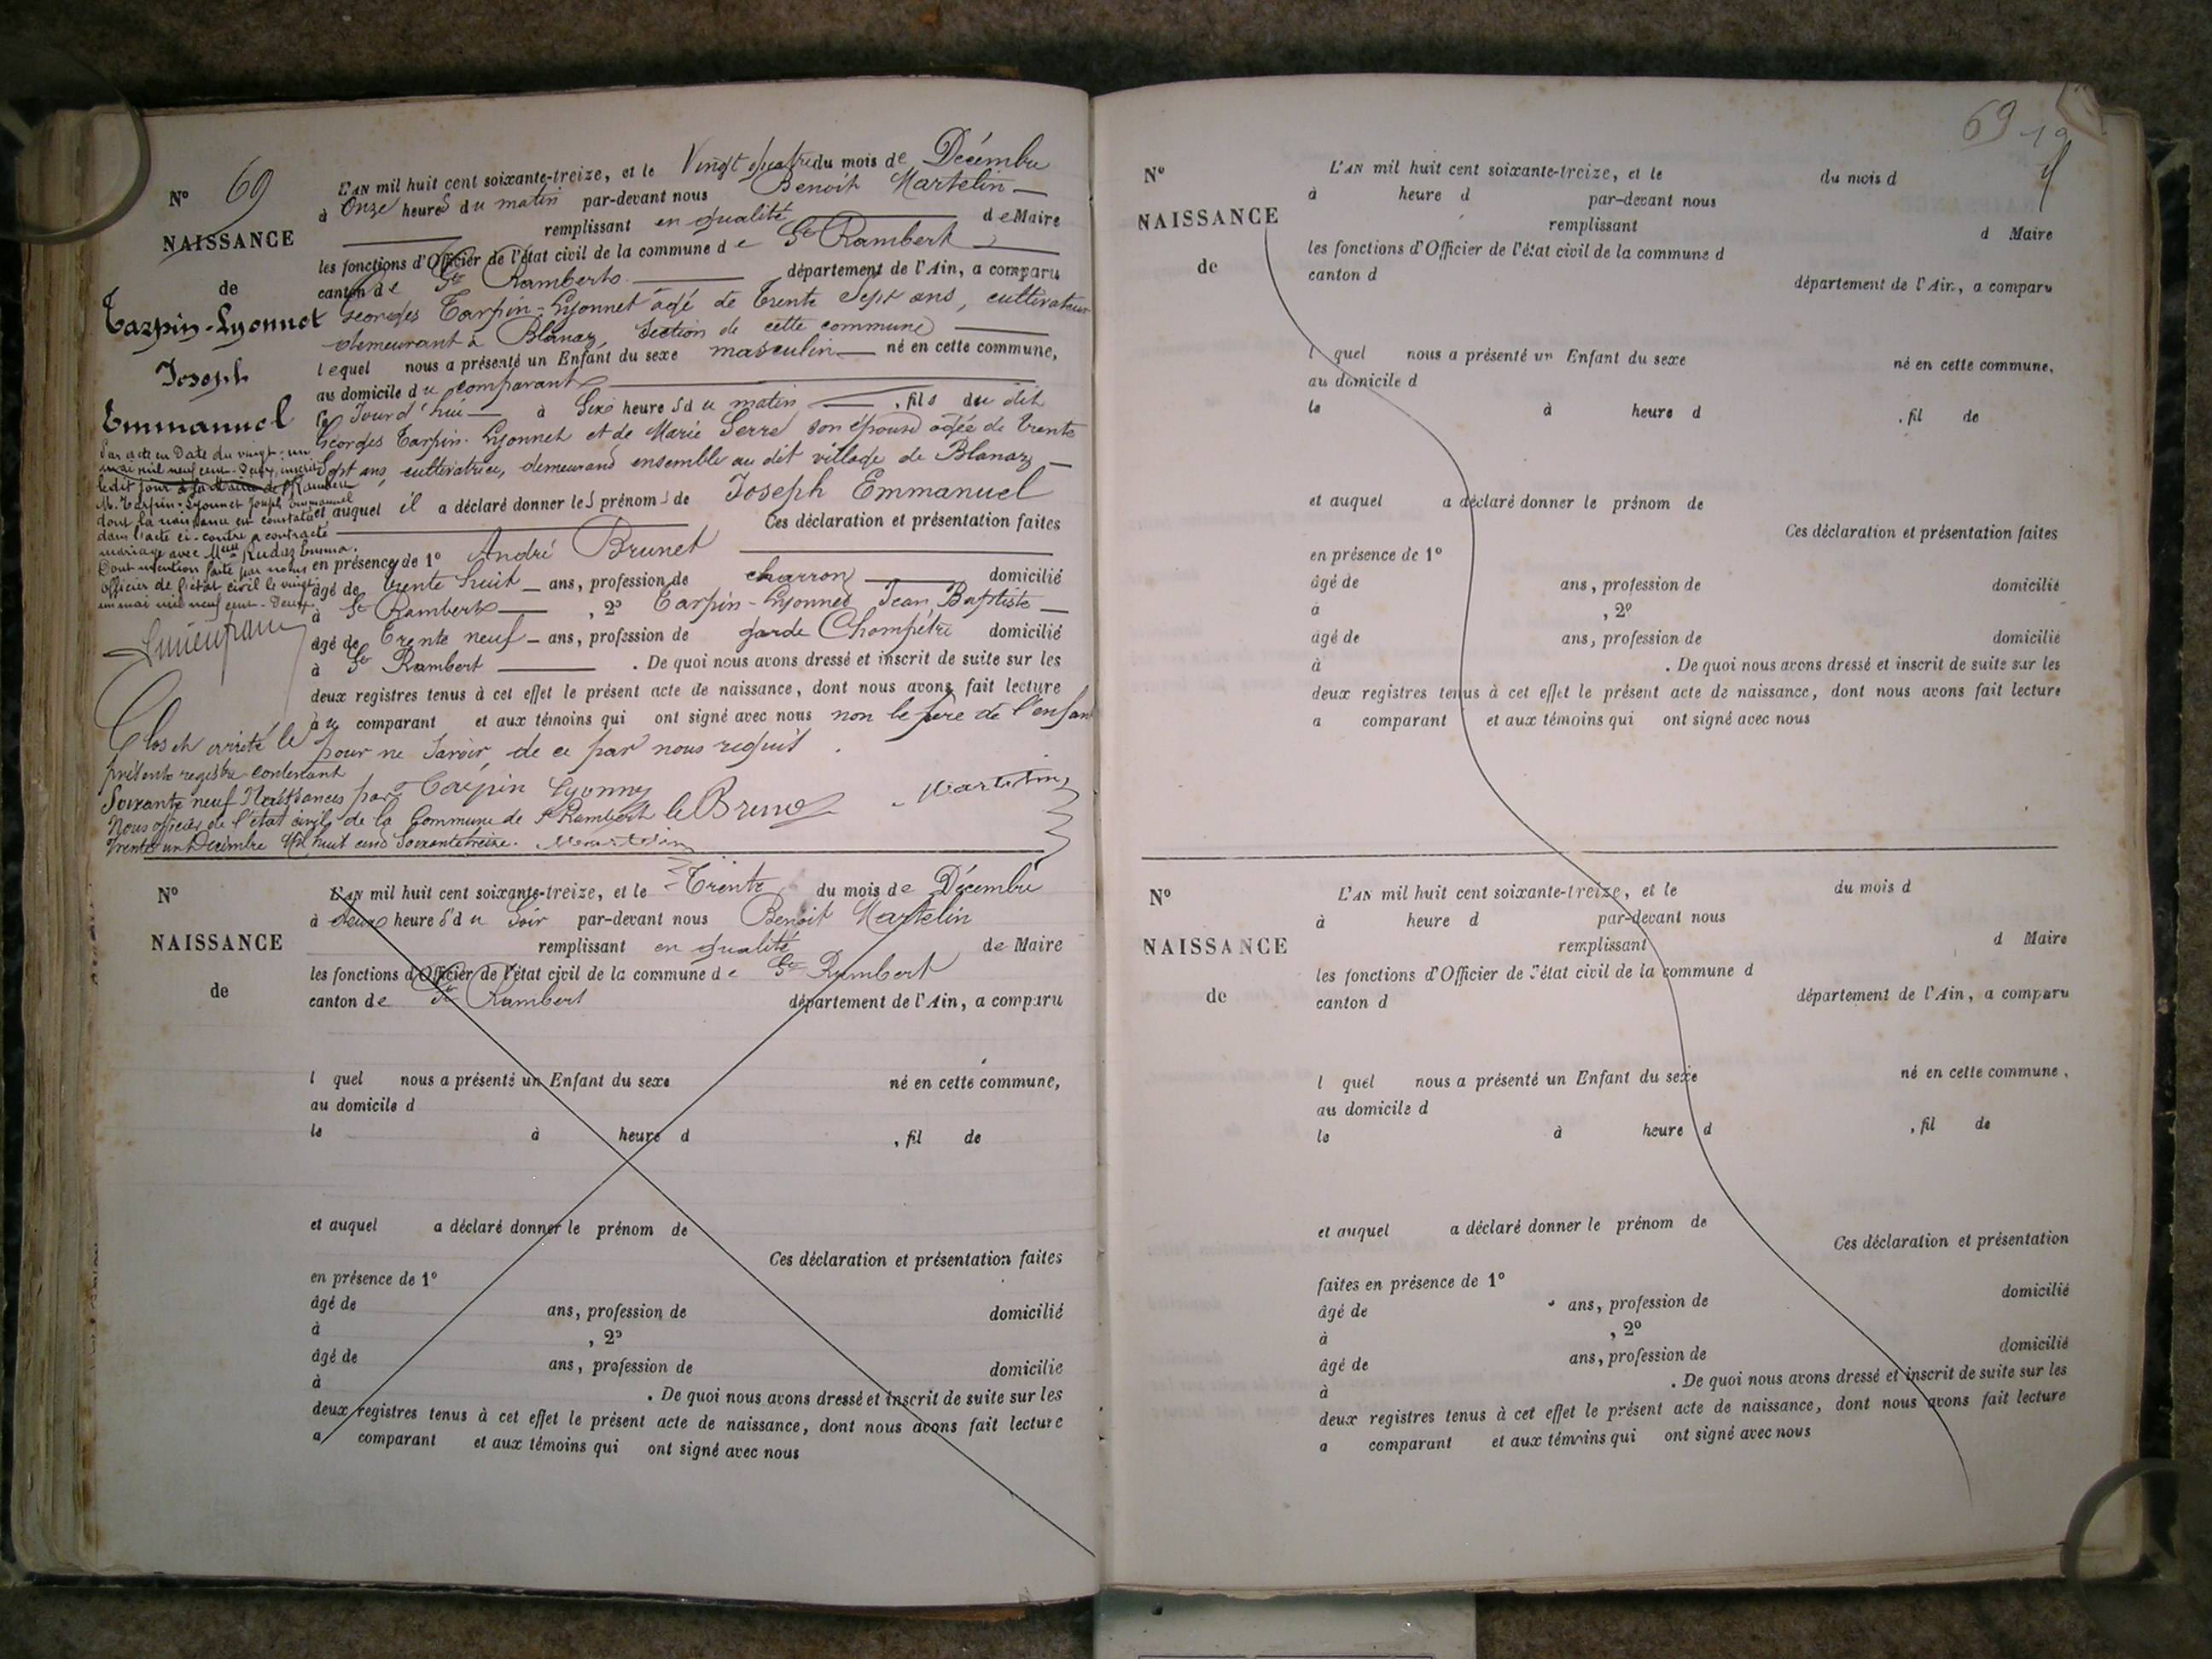 N° 69
NAISSANCE
de
Tarpin-Lyonnet
Joseph
Emmanuel
Par acte en Date du vingt-un
mai mil neuf cent-Deux, inscrit
ledit jour à la Mairie de St Rambert
M. Tarpin-Lyonnet Joseph Emmanuel
dont la naissance est constatée
dans l'acte ci-contre a contracté
mariage avec Melle Rudaz Emma.
Dont mention faite par nous
officier de l'état civil le vingt
un mai mil neuf cent-Deux.
L'AN mil huit cent soixante-treize, et le Vingt quatre du mois de Décembre
à Onze heures du matin par-devant nous Benoît Martelin
remplissant en qualité de Maire
les fonctions d'Officier de l'état civil de la commune de St Rambert
canton de St Rambert département de l'Ain, a comparu
Georges Tarpin-Lyonnet âgé de Trente Sept ans, cultivateur
demeurant à Blanaz, Section de cette commune
lequel nous a présenté un Enfant du sexe masculin né en cette commune,
au domicile du comparant
le Jourd'hui à Six heures du matin, fils du dit
Georges Tarpin-Lyonnet et de Marie Serre son épouse âgée de trente
Sept ans, cultivatrice, demeurans ensemble au dit village de Blanaz
et auquel il a déclaré donner les prénoms de Joseph Emmanuel
Ces déclaration et présentation faites
en présence de 1° André Brunet
âgé de trente huit ans, profession de charron domicilié
à St Rambert, 2° Tarpin-Lyonnet Jean Baptiste
âgé de Trente neuf ans, profession de garde Champêtre domicilié
à St Rambert. De quoi nous avons dressé et inscrit de suite sur les
deux registres tenus à cet effet le présent acte de naissance, dont nous avons fait lecture
au comparant et aux témoins qui ont signé avec nous non le père de l'enfant
pour ne Savoir, de ce par nous requis.
Tarpin Lyonny
le Brunet
Martelin
Clos et arrêté le
présente registre contenant
Soixante neuf Naissances par
Nous officier de l'état civil de la Commune de St Rambert le
trente un Décembre Mil huit cent Soixante treize. Martelin
N°
NAISSANCE
de
L'AN mil huit cent soixante-treize, et le Trente du mois de Décembre
à deux heures du Soir par-devant nous Benoit Martelin
remplissant en qualité de Maire
les fonctions d'Officier de l'état civil de la commune de St Rambert
canton de St Rambert département de l'Ain, a comparu
l quel nous a présenté un Enfant du sexe né en cette commune,
au domicile d
le à heure d , fil de
et auquel a déclaré donner le prénom de
Ces déclaration et présentation faites
en présence de 1°
âgé de ans, profession de domicilié
à , 2°
âgé de ans, profession de domicilié
à . De quoi nous avons dressé et inscrit de suite sur les
deux registres tenus à cet effet le présent acte de naissance, dont nous avons fait lecture
a comparant et aux témoins qui ont signé avec nous
69
N°
NAISSANCE
de
L'AN mil huit cent soixante-treize, et le du mois d
à heure d par-devant nous
remplissant d Maire
les fonctions d'Officier de l'état civil de la commune d
canton d département de l'Ain, a comparu
l quel nous a présenté un Enfant du sexe né en cette commune,
au domicile d
le à heure d , fil de
et auquel a déclaré donner le prénom de
Ces déclaration et présentation faites
en présence de 1°
âgé de ans, profession de domicilié
à , 2°
âgé de ans, profession de domicilié
à . De quoi nous avons dressé et inscrit de suite sur les
deux registres tenus à cet effet le présent acte de naissance, dont nous avons fait lecture
a comparant et aux témoins qui ont signé avec nous
N°
NAISSANCE
de
L'AN mil huit cent soixante-treize, et le du mois d
à heure d par-devant nous
remplissant d Maire
les fonctions d'Officier de l'état civil de la commune d
canton d département de l'Ain, a comparu
l quel nous a présenté un Enfant du sexe né en cette commune,
au domicile d
le à heure d , fil de
et auquel a déclaré donner le prénom de
Ces déclaration et présentation
faites en présence de 1° domicilié
âgé de ans, profession de
à , 2° domicilié
âgé de ans, profession de
à . De quoi nous avons dressé et inscrit de suite sur les
deux registres tenus à cet effet le présent acte de naissance, dont nous avons fait lecture
a comparant et aux témoins qui ont signé avec nous